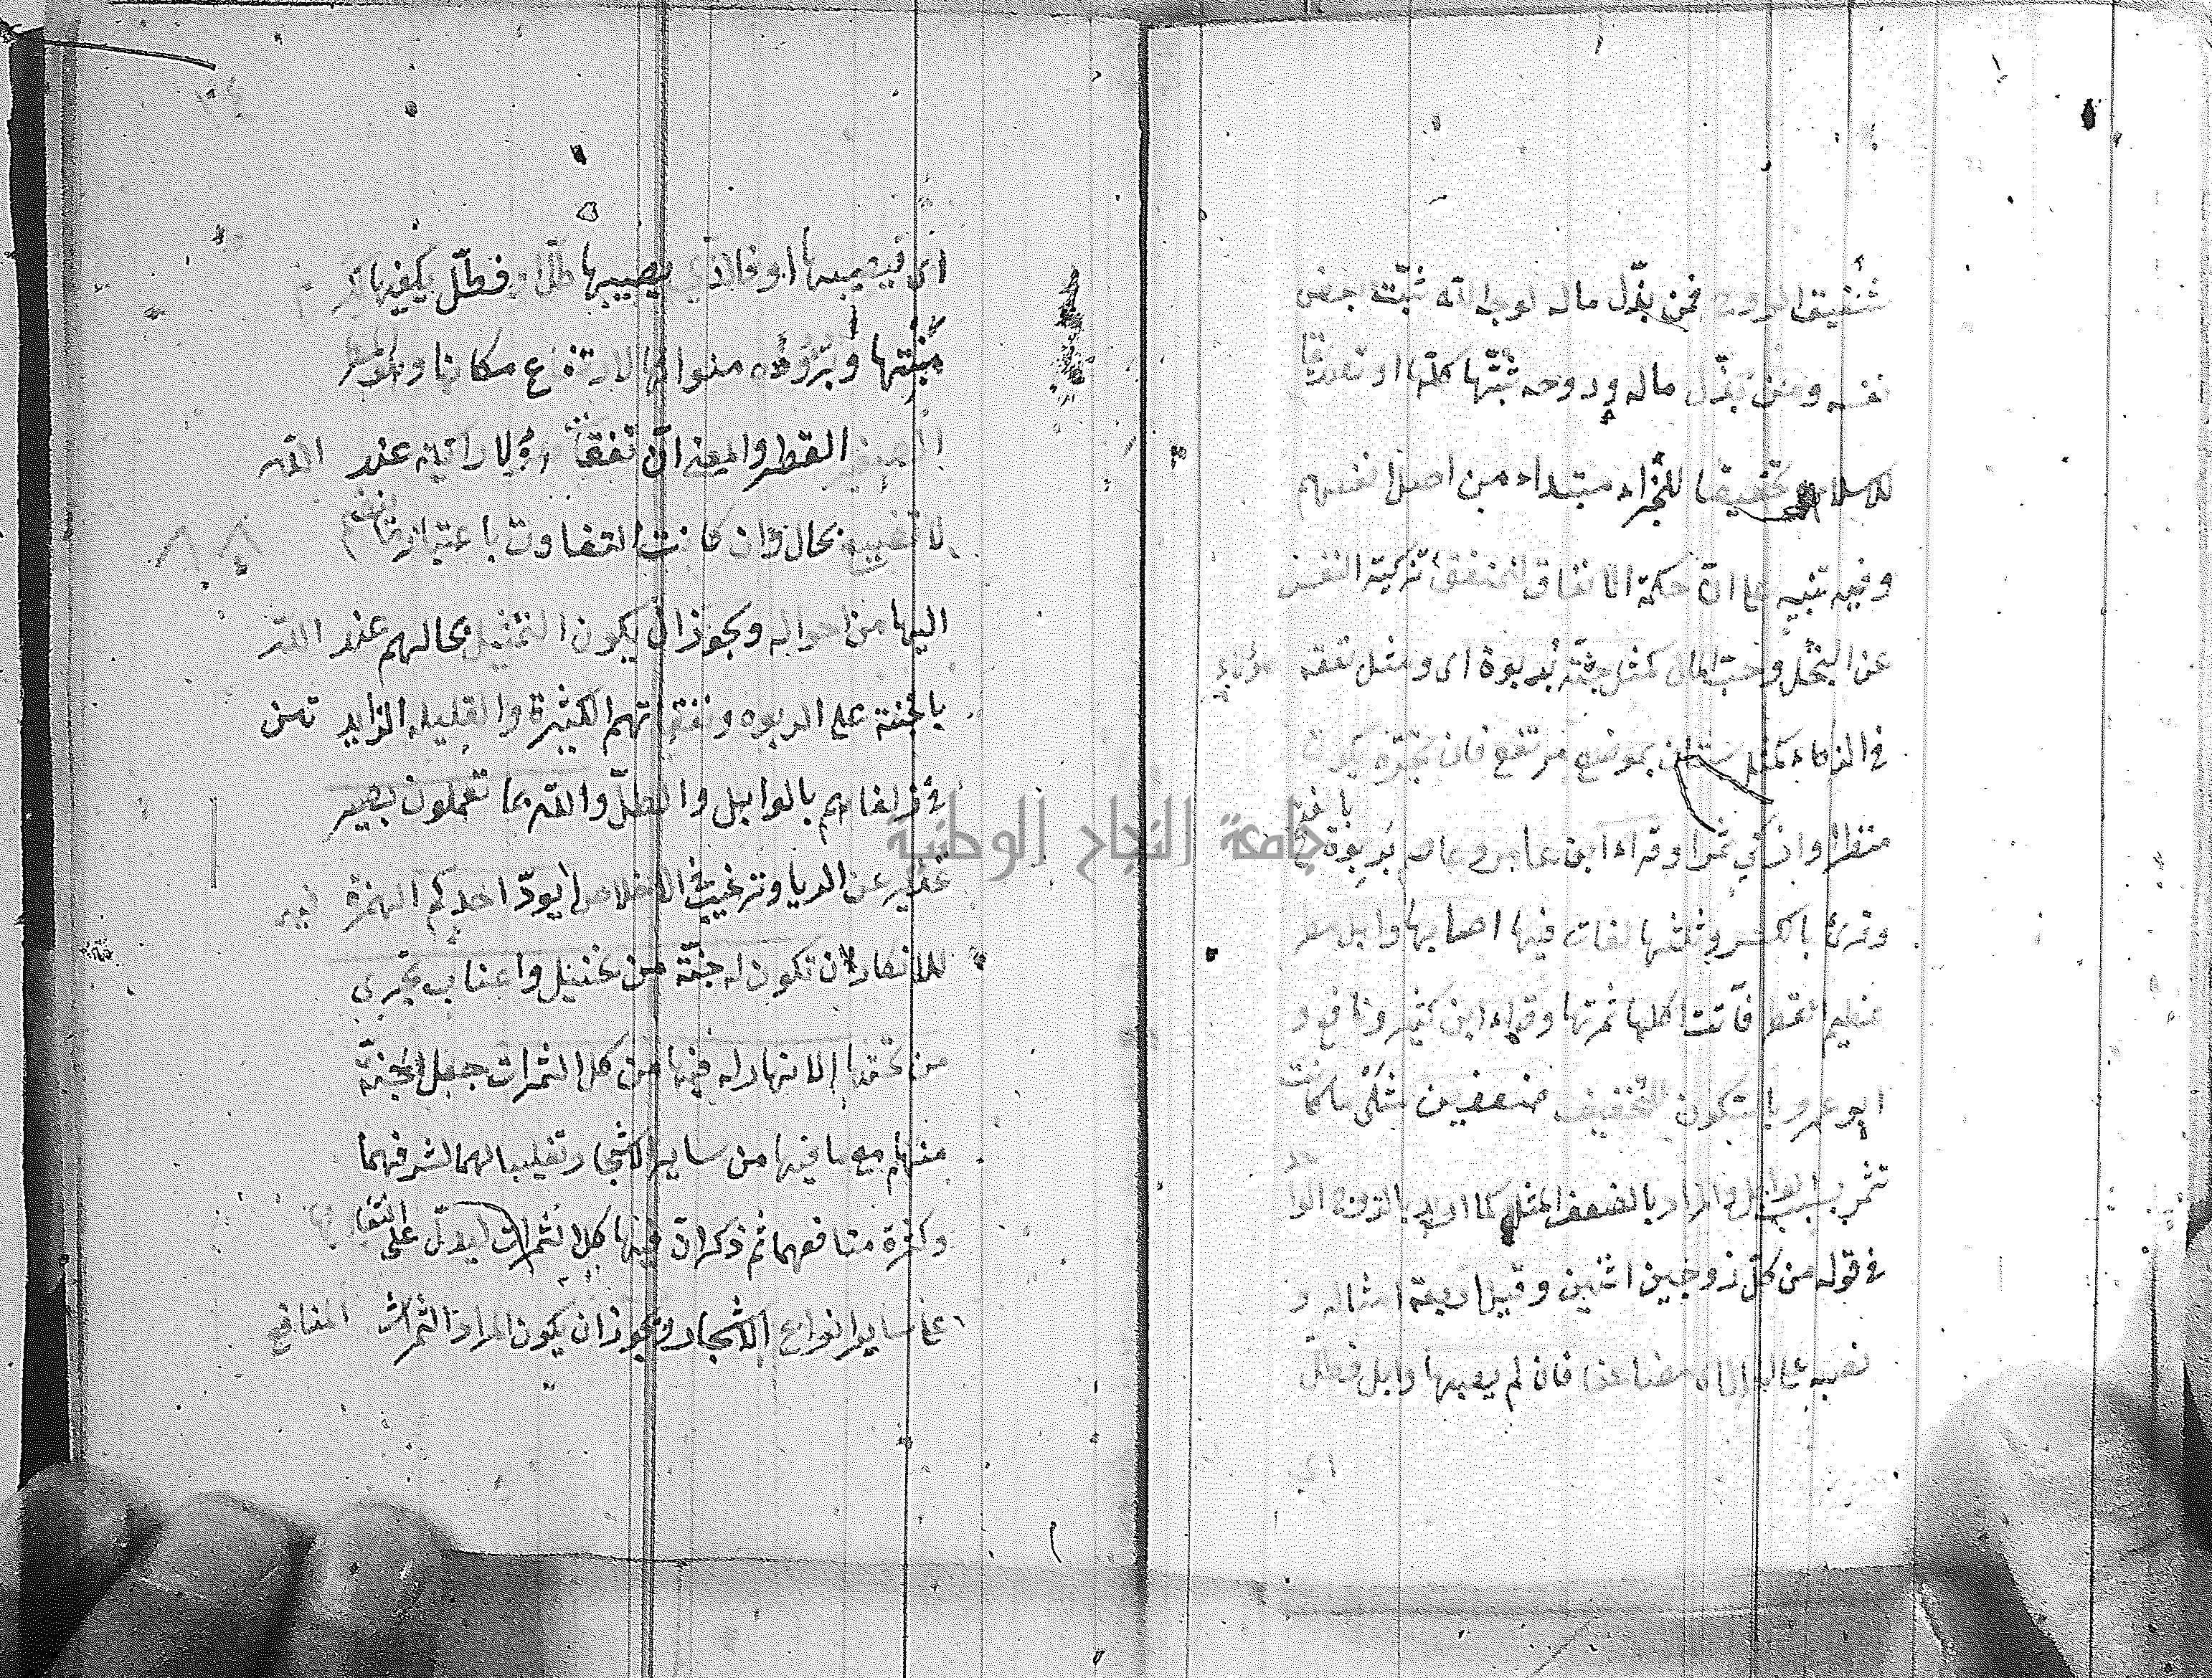 شقيق الروح فمن بذل ماله لوجه الله ثبّت بعض
نفسه ومن بذل ماله وروحه ثبّتها كلها او تصديقا
للاسلام وتحقيقا للجزاء مبتداء من اصل انفسهم
وفيه تنبيه على انّ حكمة الانفاق للمنفق تزكية النفس
عن البخل وحبّ المال كمثل جنّة بربوة اى ومثل نفقه هؤلاء
فى الزكاء كمثل بستان بموضع مرتفع فان شجره يكون
منظرا وازكى ثمرا وقراء ابن عامر وعاصم بربوة بالفتح
وقرئ بالكسر وثلثها لغات فيها اصابها وابل مطر
عظيم القطر فآتت اكلها ثمرتها وقراء ابن كثير ونافع و
ابو عمرو بالسكون للتخفيف ضعفين مثلى ما كانت
تثمر بسبب الوابل والمراد بالضعف المثل كما اريد بالزوج الواحد
فى قوله من كل زوجين اثنين وقيل اربعة امثاله و
نصبه على الحال اى مضاعفا فان لم يصبها وابل فطلّ
اى
اى فيصيبها او فالذي يصيبها طلّ او فطلّ يكفيها لكرم
منبتها وبرودة هوائها لارتفاع مكانها وهو المطر
الصغير القطر والمعنى انّ نفقات هؤلاء زاكية عند الله
لا تضيع بحال وان كانت التفاوت باعتبار ما ينضم
اليها من احواله ويجوز ان يكون التمثيل بحالهم عند الله
بالجنة على الربوه ونفقاتهم الكثيرة والقليله الزايدتين
فى زلفاهم بالوابل والطلّ والله بما تعملون بصير
تحذير عن الريا وترغيب فى الاخلاص ايودّ احدكم الهمزة فيه
للانكار ان تكون له جنّة من نخيل واعناب تجرى
من تحتها الانهار له فيها من كل الثمرات جعل الجنّة
منهما مع ما فيها من ساير الاشجار تغليبا لهما لشرفهما
وكثرة منافعهما ثم ذكر انّ فيها كل الثمرات ليدلّ على
على ساير انواع الاشجار ويجوز ان يكون المراد الثمرات المنافع
جامعة النجاح الوطنية